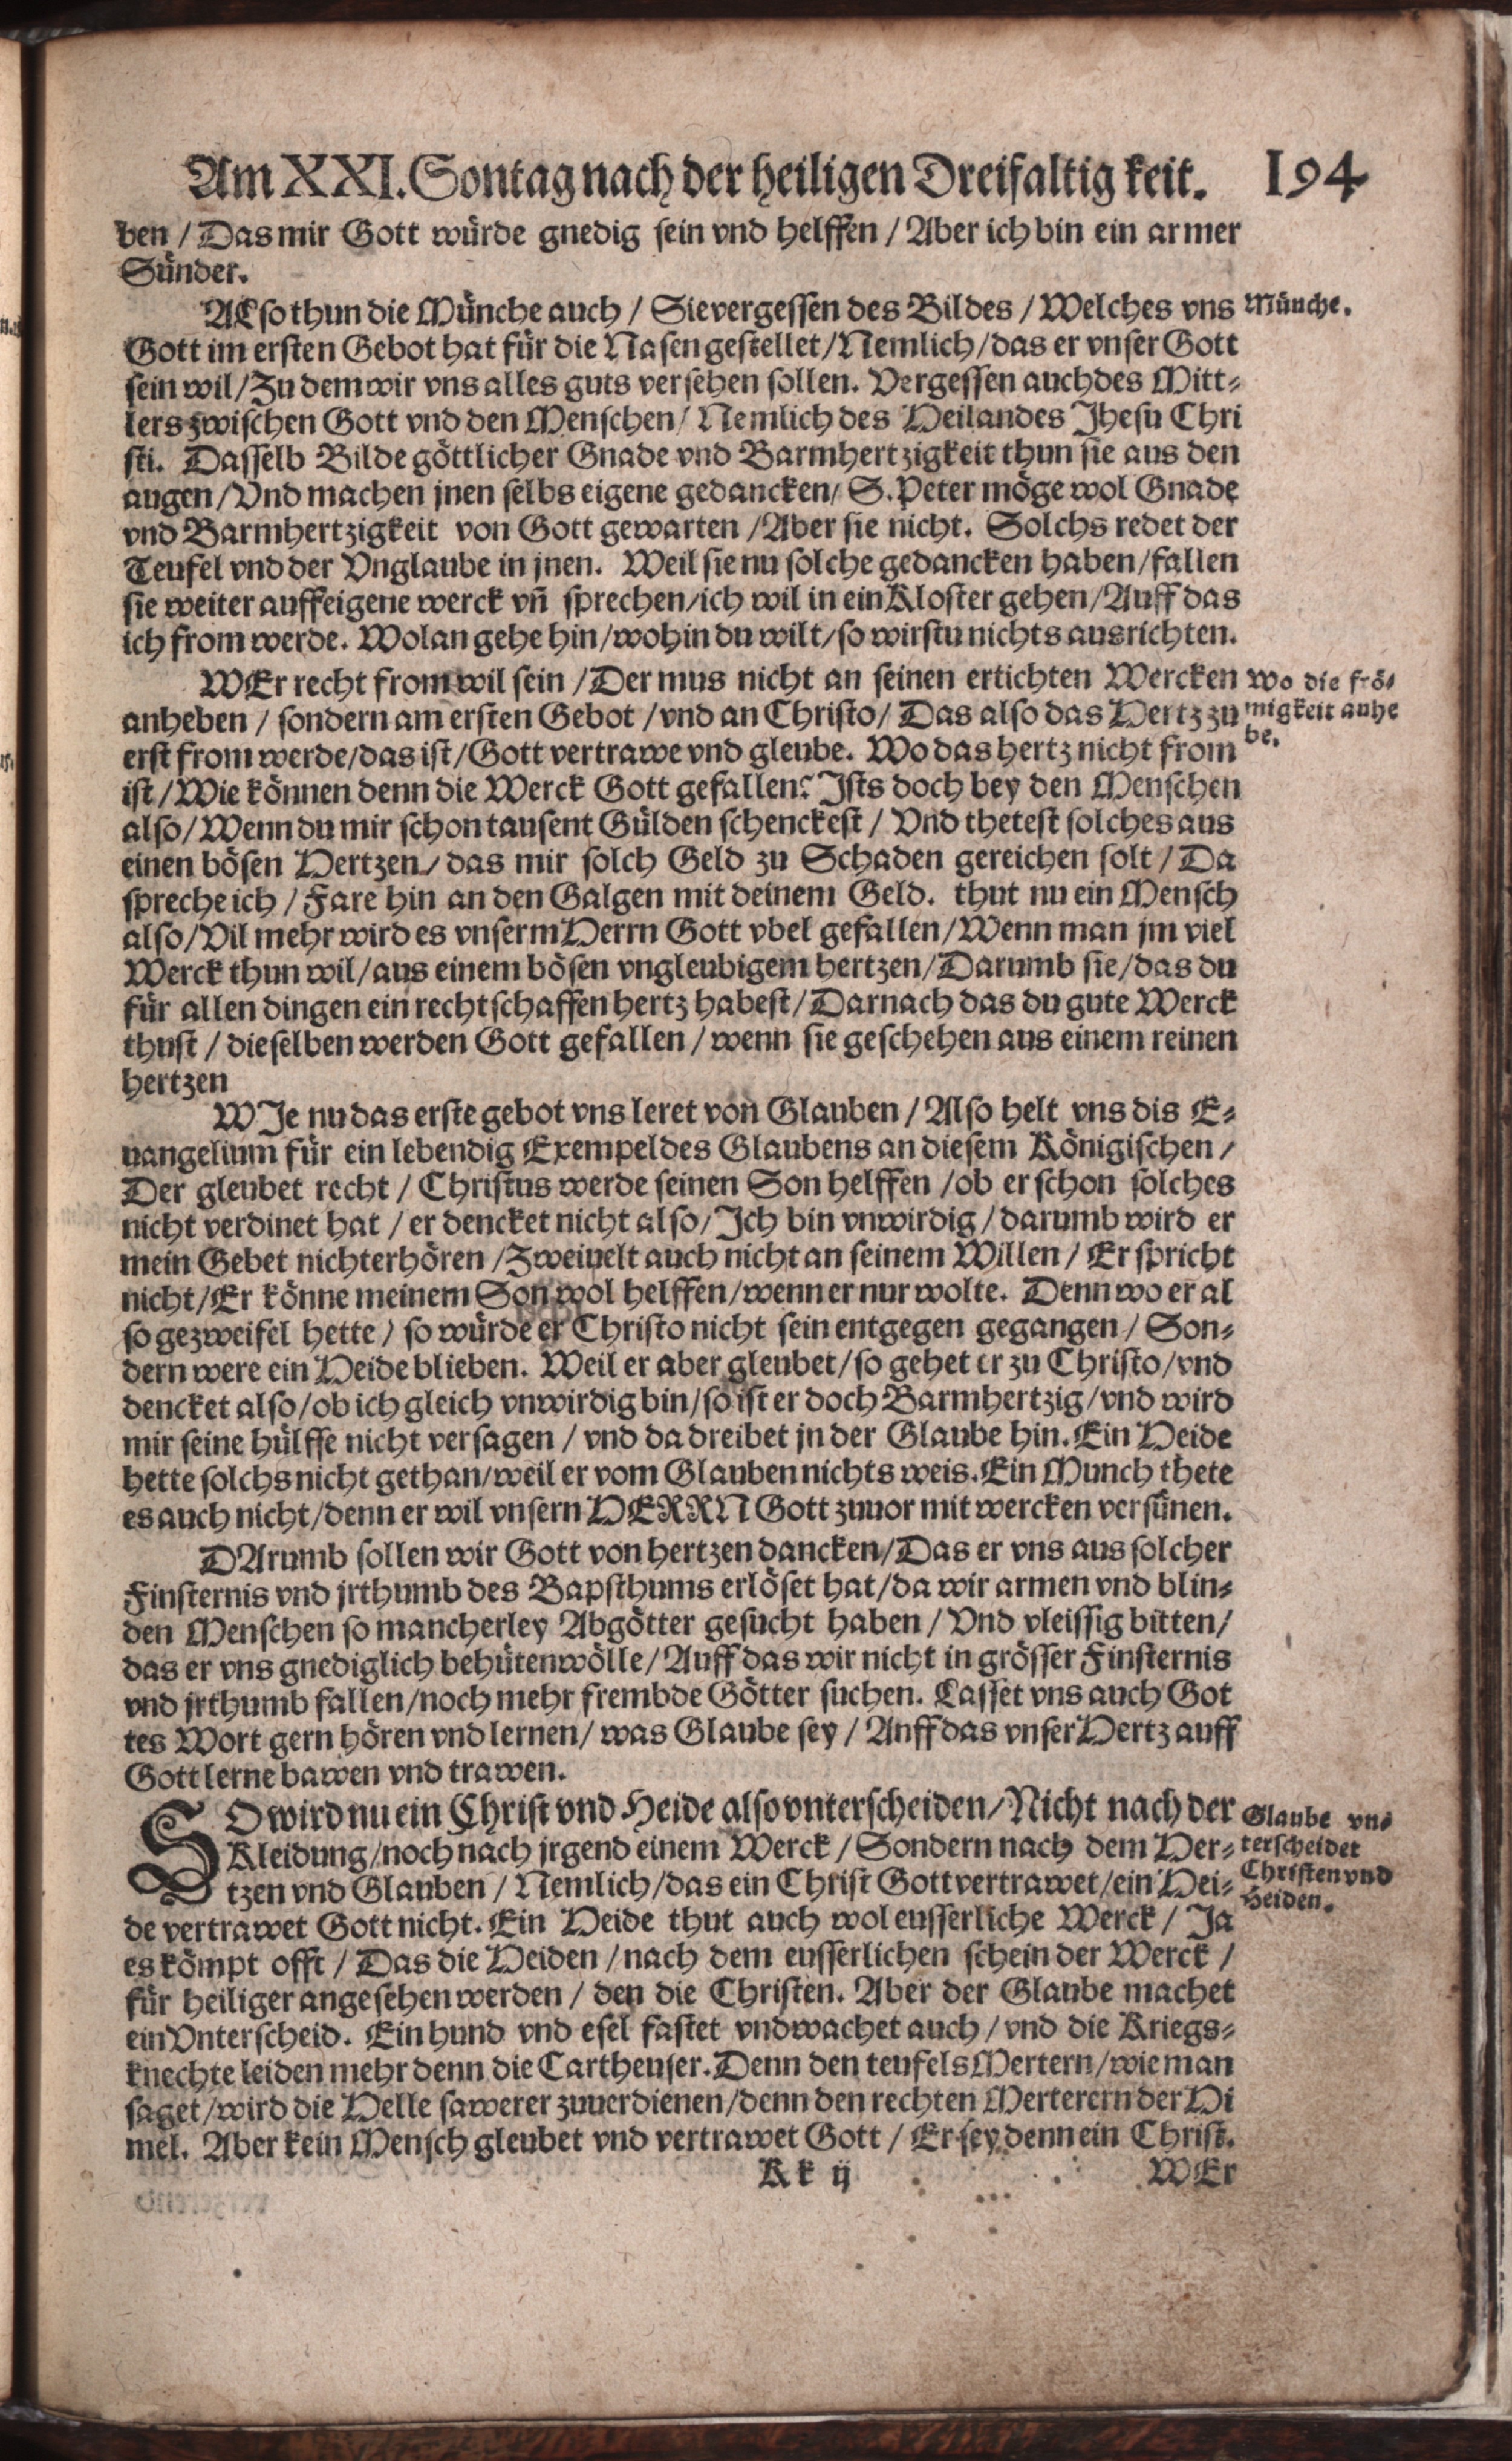 Am XXI. Sontag nach der heiligen Dreifaltig keit. 194
ben / Das mir Gott würde gnedig sein vnd helffen / Aber ich bin ein armer
Sünder.
ALso thun die Münche auch / Sie vergessen des Bildes / Welches vns
Münche.
Gott im ersten Gebot hat für die Nasen gestellet / Nemlich / das er vnser Gott
sein wil / Zu dem wir vns alles guts versehen sollen. Vergessen auch des Mitt⸗
lers zwischen Gott vnd den Menschen / Nemlich des Heilandes Jhesu Chri
sti. Dasselb Bilde göttlicher Gnade vnd Barmhertzigkeit thun sie aus den
augen / Vnd machen jnen selbs eigene gedancken / S. Peter möge wol Gnade
vnd Barmhertzigkeit von Gott gewarten / Aber sie nicht. Solchs redet der
Teufel vnd der Vnglaube in jnen. Weil sie nu solche gedancken haben / fallen
sie weiter auff eigene werck vñ sprechen / ich wil in ein Kloster gehen / Auff das
ich from werde. Wolan gehe hin / wohin du wilt / so wirstu nichts ausrichten.
WEr recht from wil sein / Der mus nicht an seinen ertichten Wercken
anheben / sondern am ersten Gebot / vnd an Christo / Das also das Hertz zu
erst from werde / das ist / Gott vertrawe vnd gleube. Wo das hertz nicht from
Wo die frö⸗
migkeit anhe
be.
ist / Wie können denn die Werck Gott gefallen? Ists doch bey den Menschen
also / Wenn du mir schon tausent Gülden schenckest / Vnd thetest solches aus
einen bösen Hertzen / das mir solch Geld zu Schaden gereichen solt / Da
spreche ich / Fare hin an den Galgen mit deinem Geld. thut nu ein Mensch
also / Vil mehr wird es vnserm Herrn Gott vbel gefallen / Wenn man jm viel
Werck thun wil / aus einem bösen vngleubigem hertzen / Darumb sie / das du
für allen dingen ein rechtschaffen hertz habest / Darnach das du gute Werck
thust / dieselben werden Gott gefallen / wenn sie geschehen aus einem reinen
hertzen
WJe nu das erste gebot vns leret von Glauben / Also helt vns dis E⸗
uangelium für ein lebendig Exempel des Glaubens an diesem Königischen /
Der gleubet recht / Christus werde seinen Son helffen / ob er schon solches
nicht verdinet hat / er dencket nicht also / Jch bin vnwirdig / darumb wird er
mein Gebet nicht erhören / Zweiuelt auch nicht an seinem Willen / Er spricht
nicht / Er könne meinem Son wol helffen / wenn er nur wolte. Denn wo er al
so gezweifel hette / so würde er Christo nicht sein entgegen gegangen / Son⸗
dern were ein Heide blieben. Weil er aber gleubet / so gehet er zu Christo / vnd
dencket also / ob ich gleich vnwirdig bin / so ist er doch Barmhertzig / vnd wird
mir seine hülffe nicht versagen / vnd da dreibet jn der Glaube hin. Ein Heide
hette solchs nicht gethan / weil er vom Glauben nichts weis. Ein Munch thete
es auch nicht / denn er wil vnsern HERRN Gott zuuor mit wercken versünen.
DArumb sollen wir Gott von hertzen dancken / Das er vns aus solcher
Finsternis vnd jrthumb des Bapsthums erlöset hat / da wir armen vnd blin⸗
den Menschen so mancherley Abgötter gesucht haben / Vnd vleissig bitten /
das er vns gnediglich behüten wölle / Auff das wir nicht in grösser Finsternis
vnd jrthumb fallen / noch mehr frembde Götter suchen. Lasset vns auch Got
tes Wort gern hören vnd lernen / was Glaube sey / Auff das vnser Hertz auff
Gott lerne bawen vnd trawen.
SO wird nu ein Christ vnd Heide also vnterscheiden / Nicht nach der
Kleidung / noch nach jrgend einem Werck / Sondern nach dem Her⸗
tzen vnd Glauben / Nemlich / das ein Christ Gott vertrawet / ein Hei⸗
Glaube vn⸗
terscheidet
Christen vnd
Heiden.
de vertrawet Gott nicht. Ein Heide thut auch wol eusserliche Werck / Ja
es kömpt offt / Das die Heiden / nach dem eusserlichen schein der Werck /
für heiliger angesehen werden / den die Christen. Aber der Glaube machet
ein Vnterscheid. Ein hund vnd esel fastet vnd wachet auch / vnd die Kriegs⸗
knechte leiden mehr denn die Cartheuser. Denn den teufels Mertern / wie man
saget / wird die Helle sawerer zuuerdienen / denn den rechten Merterern der Hi
mel. Aber kein Mensch gleubet vnd vertrawet Gott / Er sey denn ein Christ.
Kk ij WEr